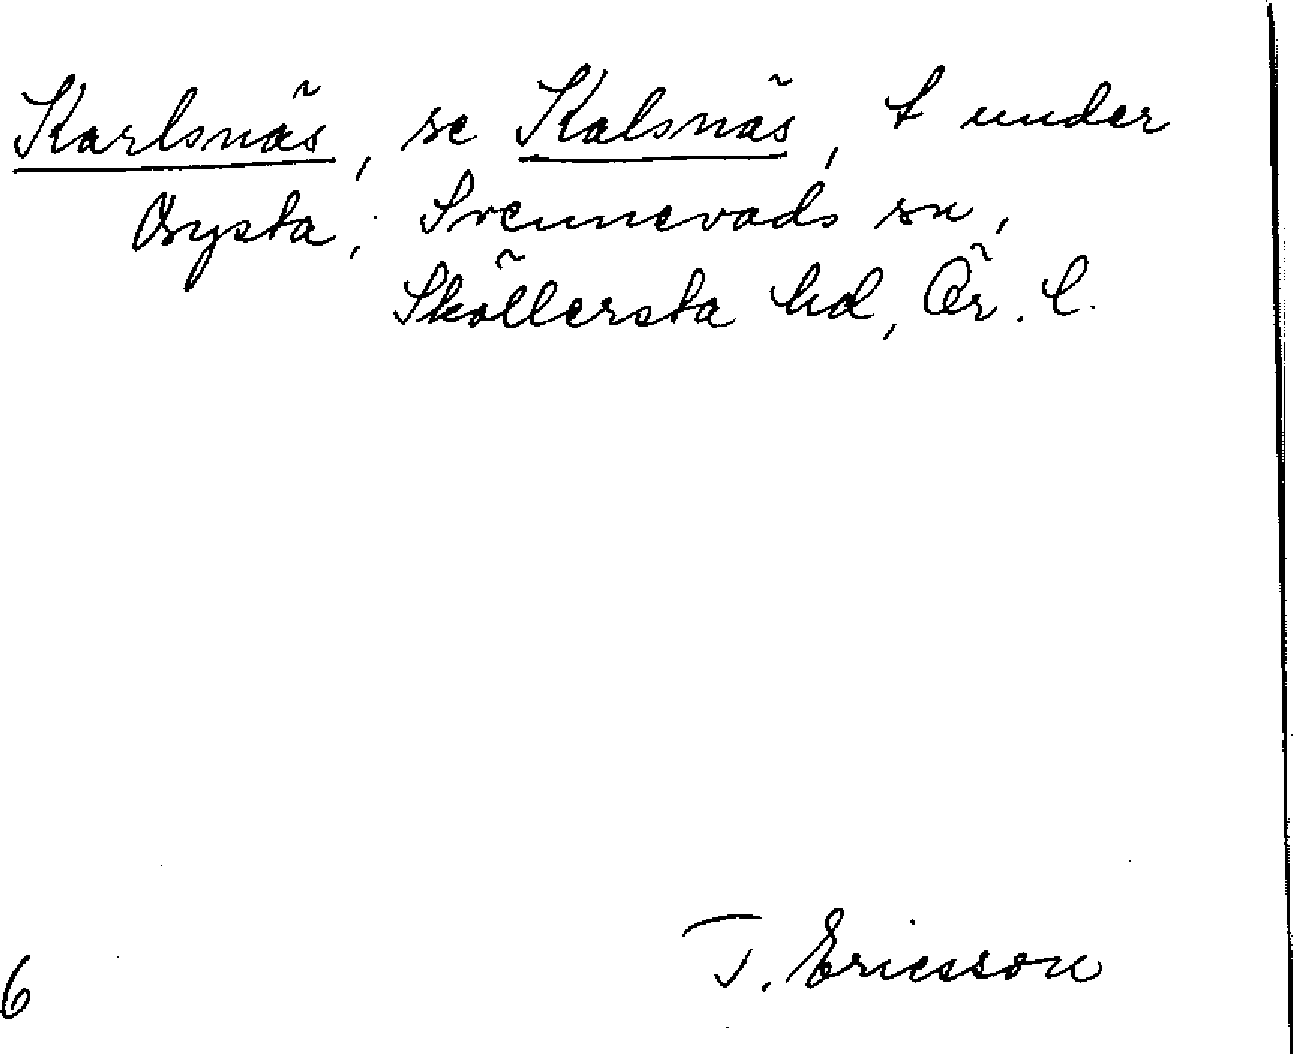 Karlsnäs, se Kalsnäs, t under
Brysta, Svennevads sn,
Sköllersta hd, Ör. l.
T. Ericsson
6